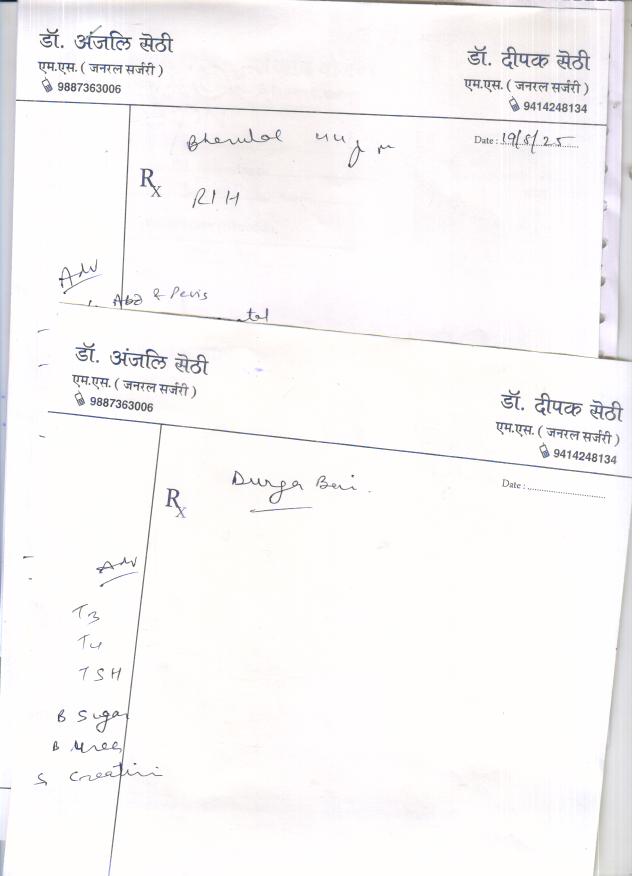 डॉ. अंजलि सेठी
एम.एस. ( जनरल सर्जरी )
9887363006
डॉ. दीपक सेठी
एम.एस. ( जनरल सर्जरी )
9414248134
Date : 19/5/25
Bherulal 44 y m
Rx
RIH
Adv
1. Abd & Pevis
डॉ. अंजलि सेठी
एम.एस. ( जनरल सर्जरी )
9887363006
डॉ. दीपक सेठी
एम.एस. ( जनरल सर्जरी )
9414248134
Date :
Durga Beni.
Rx
Adv
T3
T4
TSH
B Sugar
B Urea
S Creatini